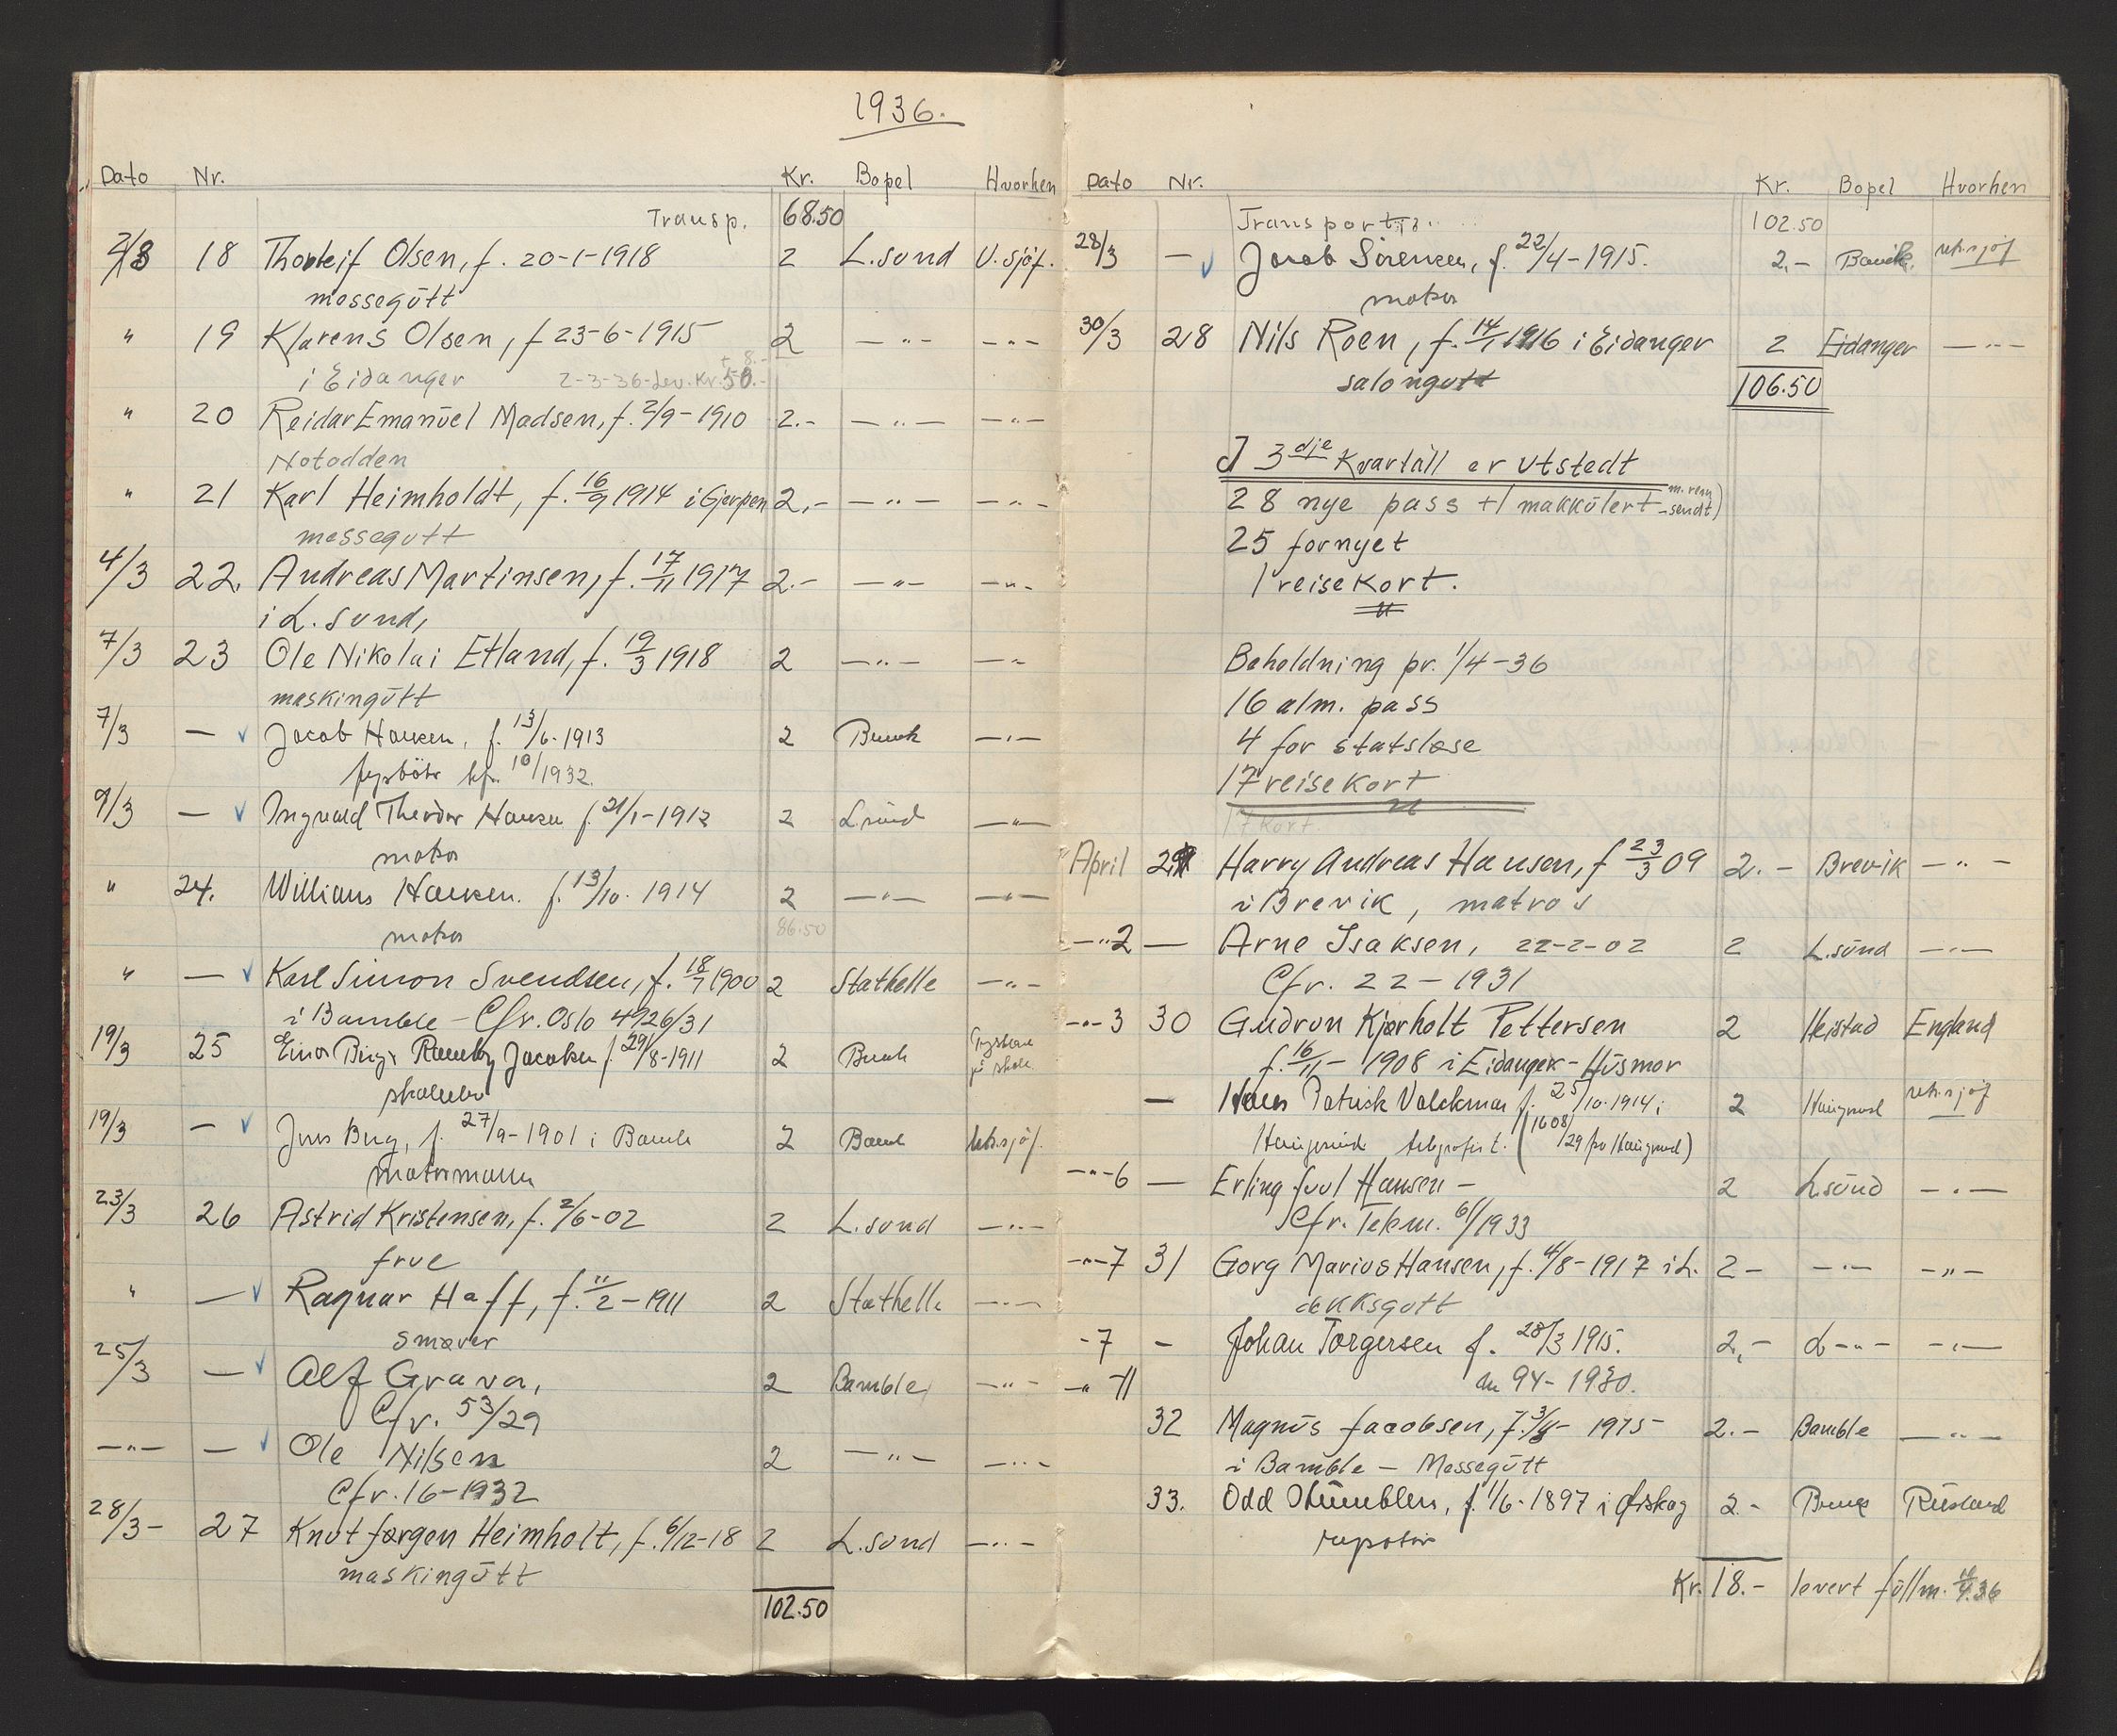 1936.
Dato Nr. Kr. Bopel Hvorhen
Transp. 68.50
2/3 18 Thorleif Olsen, f. 20-1-1918 2 L.sund U.sjøf.
messegutt
" 19 Klarens Olsen, f 23-6-1915 2 —"— —"—
i Eidanger 2-3-36-Lev.Kr. 50.-
+ 8.-
" 20 Reidar Emanuel Madsen, f. 2/9-1910 2.- —"— —"—
Notodden
" 21 Karl Heimholdt, f. 16/9 1914 i Gjerpen 2,- —"— —"—
messegutt
4/3 22. Andreas Martinsen, f. 17/11 1917 2.- —"— —"—
i L. sund,
7/3 23 Ole Nikolai Etland, f. 19/3 1918 2 —"— —"
maskingutt
7/3 — Jacob Hansen, f. 13/6-1913 2 —"—
fyrbøter kfr. 10/1932.
9/3 — Ingvald Theodor Hansen f. 21/1-1912 2 L.sund —"—
matros
" 24. William Hansen. f. 13/10-1914 2 —"— —"—
matros 86.50
" — Karl Simon Svendsen, f. 18/7 1900 2 Stathelle —"—
i Bamble - Cfr. Oslo 4926/31
19/3 25 Einar Birger Jacobsen f. 29/8-1911 2
19/3 — Jens Berg, f. 27/9-1901 i 2 utr.sjøf.
motormann
23/3 26 Astrid Kristensen, f. 2/6-02 2 L.sund —"—
frue
" — Ragnar Haff, f. 11/2-1911 2 Stathelle —"—
smører
25/3 — Alf Grava, 2 Bamble, —"—
Cfr. 53/29
—"— — Ole Nilsen 2 —"— —"—
Cfr. 16-1932
28/3- 27 Knut Jørgen Heimholt, f. 6/12-18 2 L.sund —"—
maskingutt
102.50
Dato Nr. Kr. Bopel Hvorhen
Transport 102.50
28/3 — Jacob Sörensen, f. 22/4-1915. 2.- utr.sjøf
matros
30/3 28 Nils Roen, f. 14/1 1916 i Eidanger 2 Eidanger —"—
salongutt 106.50
I 3dje Kvartall er utstedt
28 nye pass + 1 makkulert
25 fornyet
1 reisekort.
Beholdning pr. 1/4-36
16 alm. pass
4 for statsløse
17 reisekort
17 kort.
April 29 Harry Andreas Hansen, f 23/3 09 2.- Brevik —"—
i Brevik, matros
—"2 — Arne Isaksen, 22-2-02 2 L.sund —"—
Cfr. 22-1931
—"-3 30 Gudrun Kjørholt Pettersen 2 Heistad England
f. 16/11-1908 i Eidanger - Husmor
— Hans Patrick Valckmar f. 25/10-1914 i 2 Haugesund utr.sjøf
Haugesund telegrafist. (1608/29 fra Haugesund)
—"-6 — Erling Juul Hansen - 2 L.sund —"—
Cfr. Telem. 61/1933
—"-7 31 Gorg Marius Hansen, f. 4/8-1917 i L. 2- —"— —"—
dekksgutt
-7 - Johan Torgersen f. 28/3 1915. 2,- L—"— —"—
94-1930.
—"11
32 Magnus Jacobsen, f. 1915 2.- Bamble —"—
i Bamble - Messegutt
33. Odd f. 1/6-1897 i Ørskog 2.- Russland
reparatør
Kr. 18.- levert fullm. 4.36